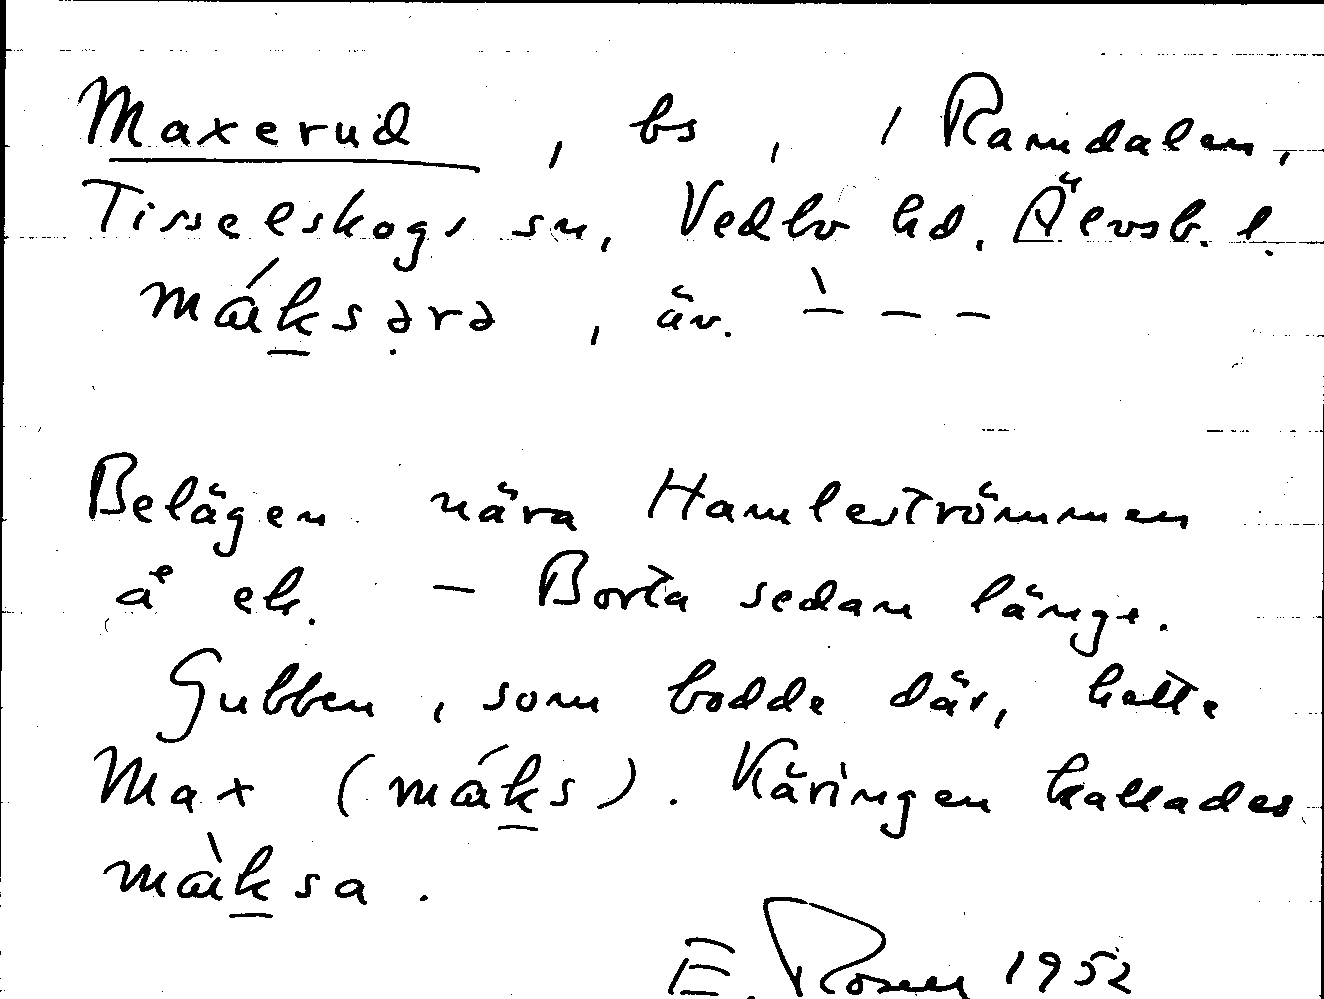 Maxerud, bs, i Ramdalen,
Tisselskogs sn, Vedbo hd. Älvsb. l.
máksərə, äv. ̀– – –
Belägen nära Hamleströmmen
å ek. – Borta sedan länge.
Gubben, som bodde där, hette
Max (máks). Käringen kallades
màksa.
E. Rosell 1952